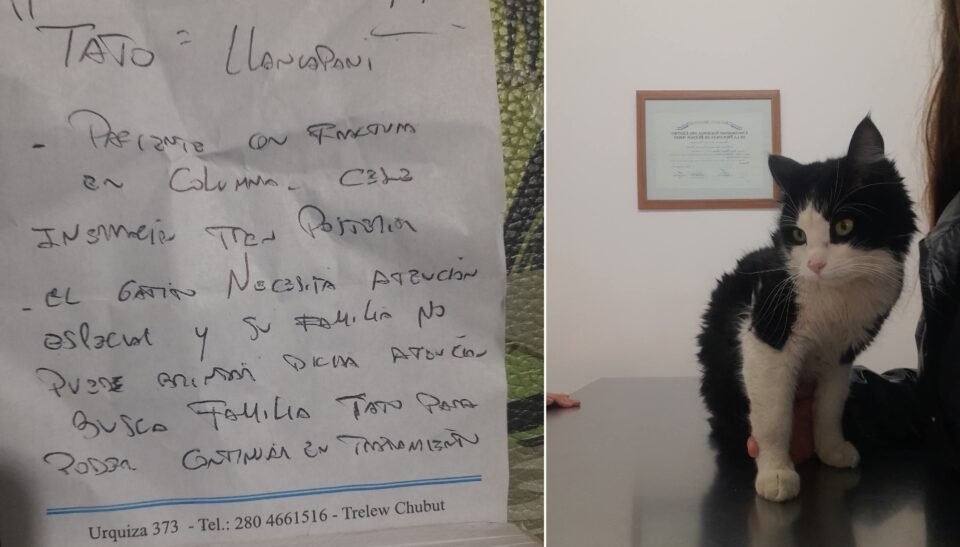 TATO = LLANCAPANI
- PACIENTE CON FRACTURA
EN COLUMNA.
TREN POSTERIOR
- EL GATITO NECESITA ATENCIÓN
ESPECIAL Y SU FAMILIA NO
PUEDE BRINDAR DICHA ATENCIÓN
BUSCA FAMILIA TATO PARA
PODER CONTINUAR EN TRATAMIENTO
Urquiza 373 - Tel.: 280 4661516 - Trelew Chubut